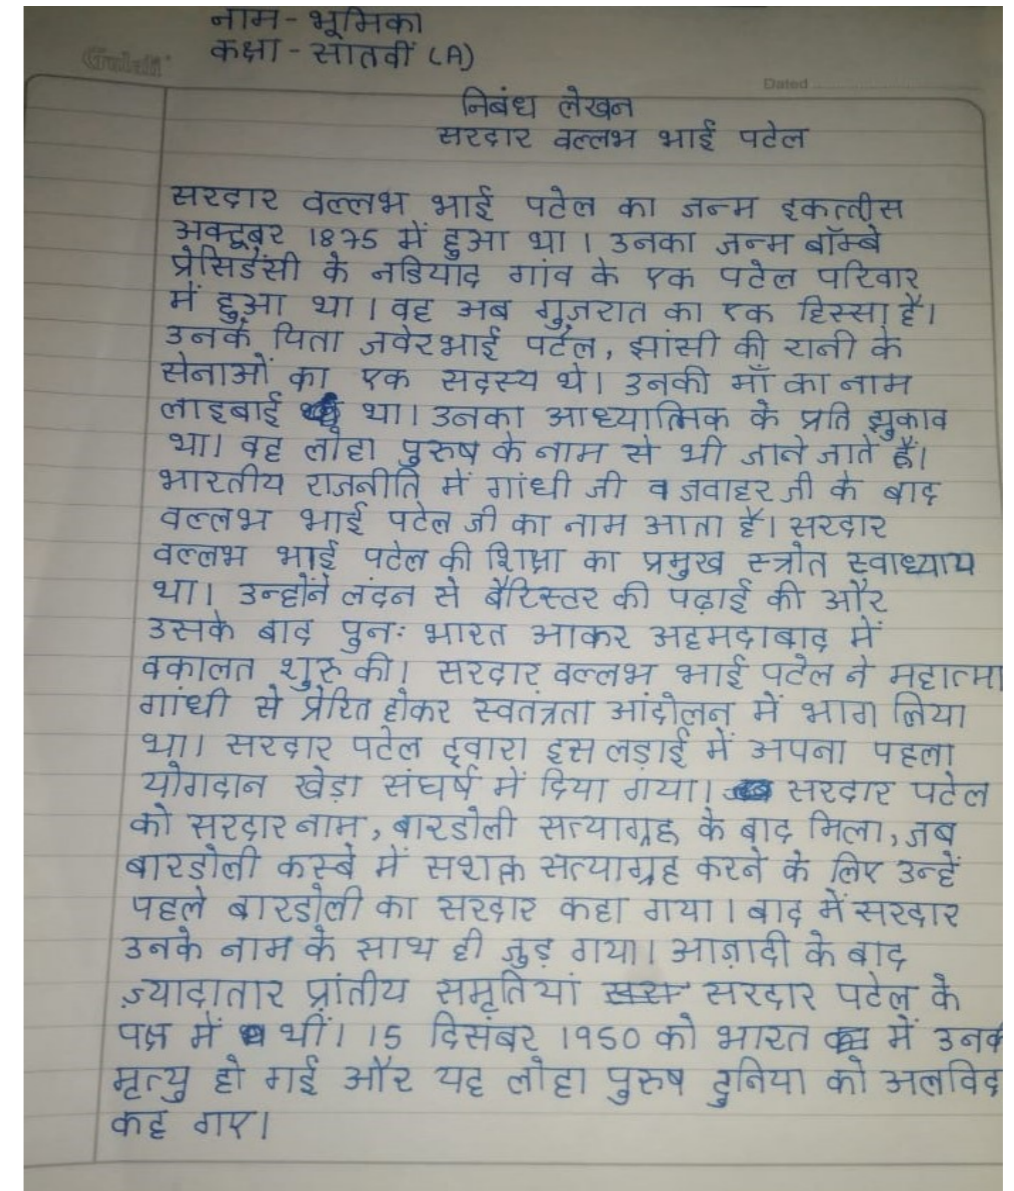 नाम - भूमिका
कक्षा - सातवीं (A)
Gulati
Dated
निबंध लेखन
सरदार वल्लभ भाई पटेल
सरदार वल्लभ भाई पटेल का जन्म इकत्तीस
अक्टूबर 1875 में हुआ था। उनका जन्म बॉम्बे
प्रेसिडेंसी के नडियाद गांव के एक पटेल परिवार
में हुआ था। वह अब गुजरात का एक हिस्सा है।
उनके पिता जवेरभाई पटेल, झांसी की रानी के
सेनाओं का एक सदस्य थे। उनकी माँ का नाम
लाइबाई था। उनका आध्यात्मिक के प्रति झुकाव
था। वह लोहा पुरुष के नाम से भी जाने जाते हैं।
भारतीय राजनीति में गांधी जी व जवाहर जी के बाद
वल्लभ भाई पटेल जी का नाम आता है। सरदार
वल्लभ भाई पटेल की शिक्षा का प्रमुख स्त्रोत स्वाध्याय
था। उन्होंने लंदन से बैरिस्टर की पढ़ाई की और
उसके बाद पुनः भारत आकर अहमदाबाद में
वकालत शुरू की। सरदार वल्लभ भाई पटेल ने महात्मा
गांधी से प्रेरित होकर स्वतंत्रता आंदोलन में भाग लिया
था। सरदार पटेल द्वारा इस लड़ाई में अपना पहला
योगदान खेड़ा संघर्ष में दिया गया। सरदार पटेल
को सरदार नाम, बारडोली सत्याग्रह के बाद मिला, जब
बारडोली कस्बे में सशक्त सत्याग्रह करने के लिए उन्हें
पहले बारडोली का सरदार कहा गया। बाद में सरदार
उनके नाम के साथ ही जुड़ गया। आज़ादी के बाद
ज़्यादातार प्रांतीय समृतियां सरदार पटेल के
पक्ष में थीं। 15 दिसंबर 1950 को भारत में उनक
मृत्यु हो गई और यह लोहा पुरुष दुनिया को अलविद
कह गए।